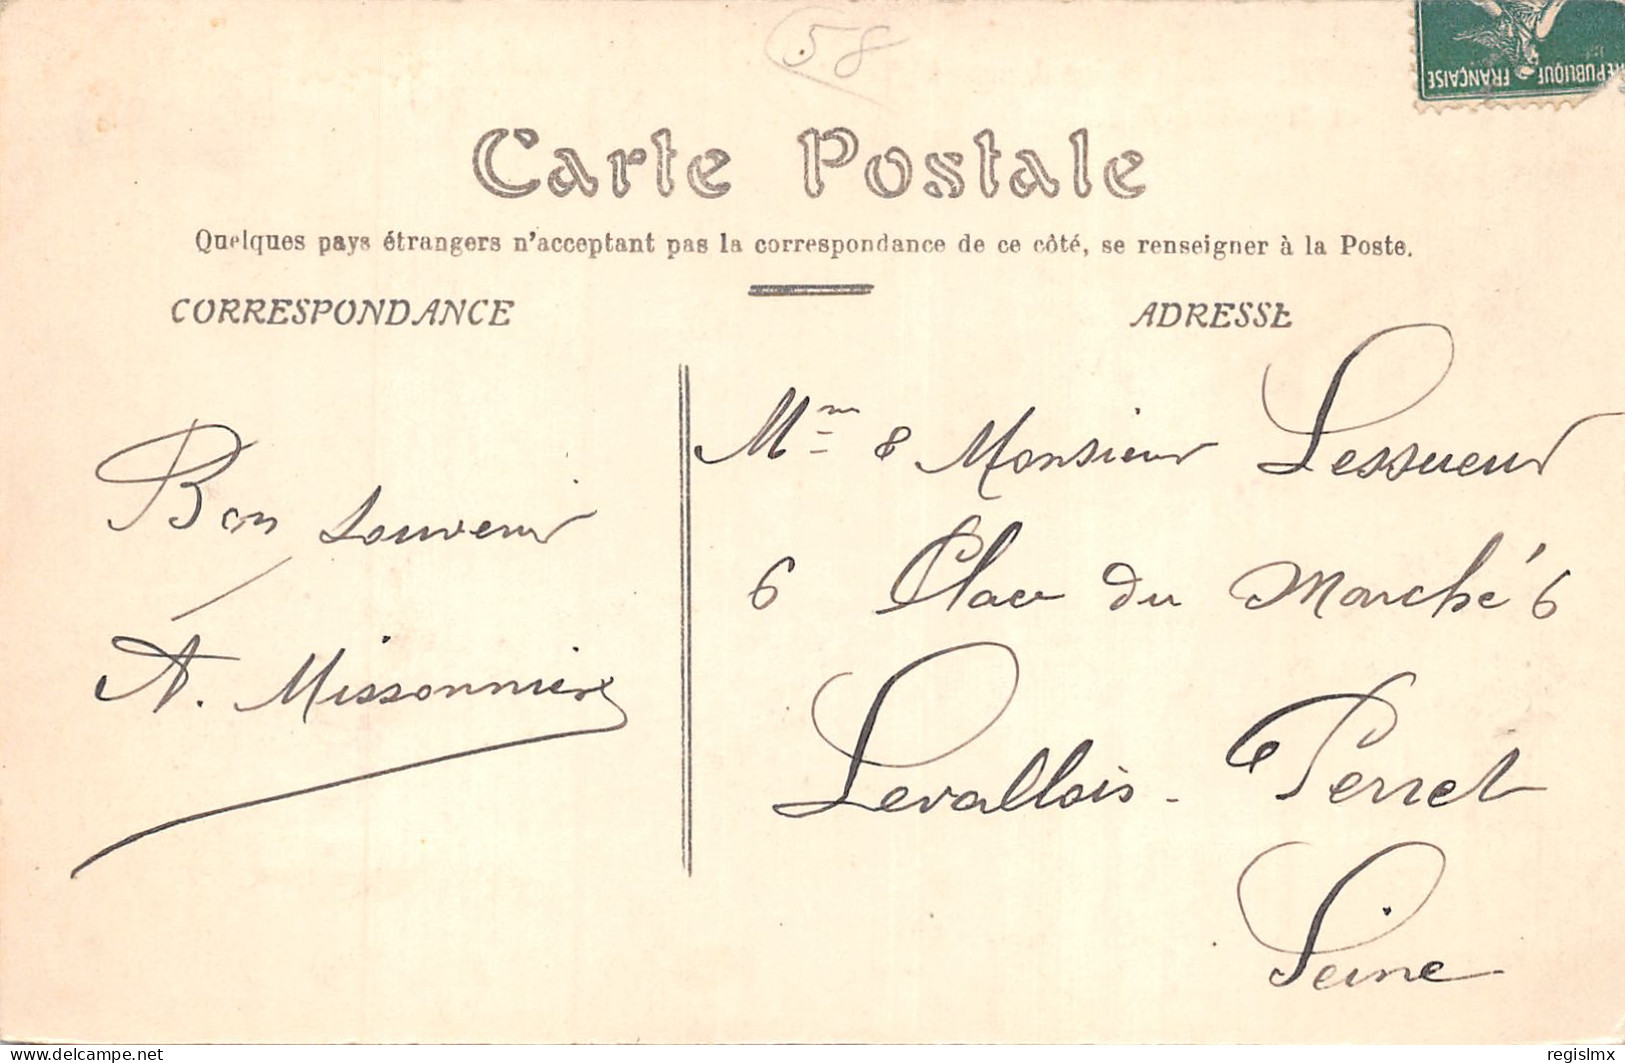 58
RÉPUBLIQUE FRANÇAISE
Carte Postale
Quelques pays étrangers n'acceptent pas la correspondance de ce côté, se renseigner à la Poste.
CORRESPONDANCE
ADRESSE
Bon Souvenir
A. Missonnier
Mme & Monsieur Lessueur
6 Place du Marché 6
Levallois - Perret
Seine
Website: delcampe.net
regislmx